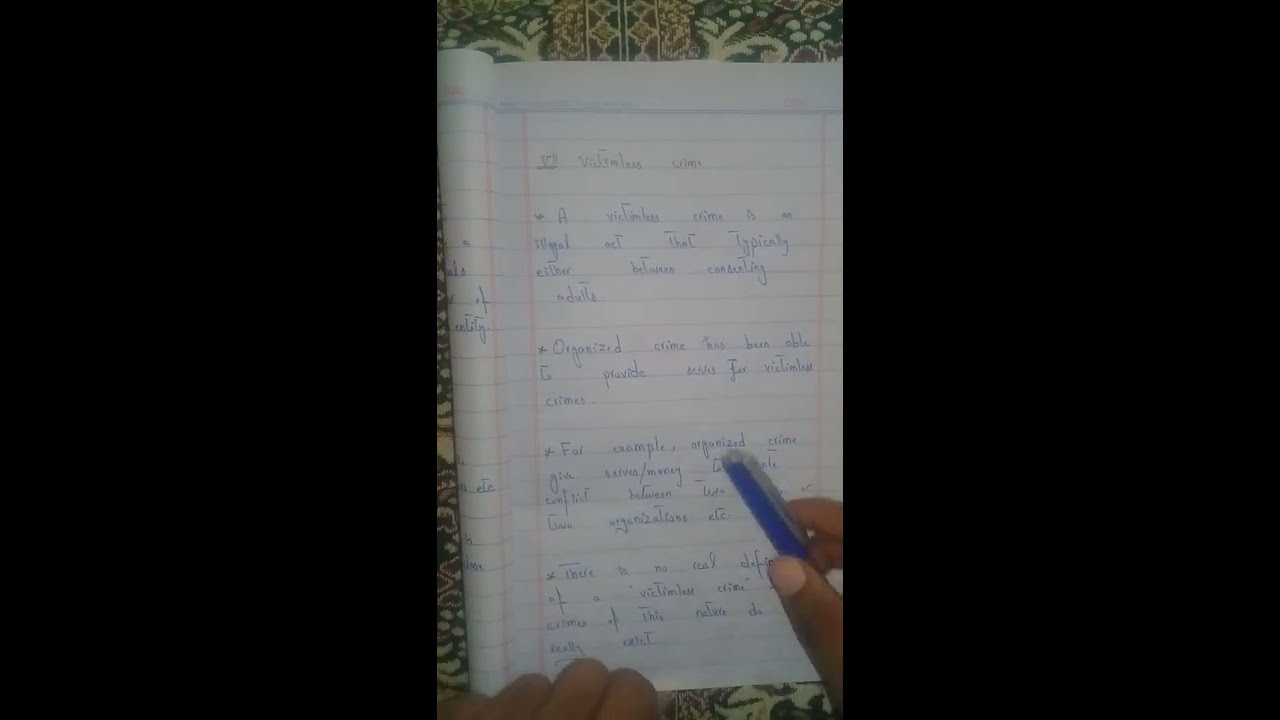 VII Victimless crime
* A victimless crime is an
illegal act That Typically
either between consenting
adults.
* Organized crime has been able
To provide serves For victimless
crimes.
* For example, organized crime
give serves/money
conflict between Two or
Two organizations etc.
* There is no real
of a "victimless crime"
crimes of This nature do
really exist
a
of
entity.
etc
in